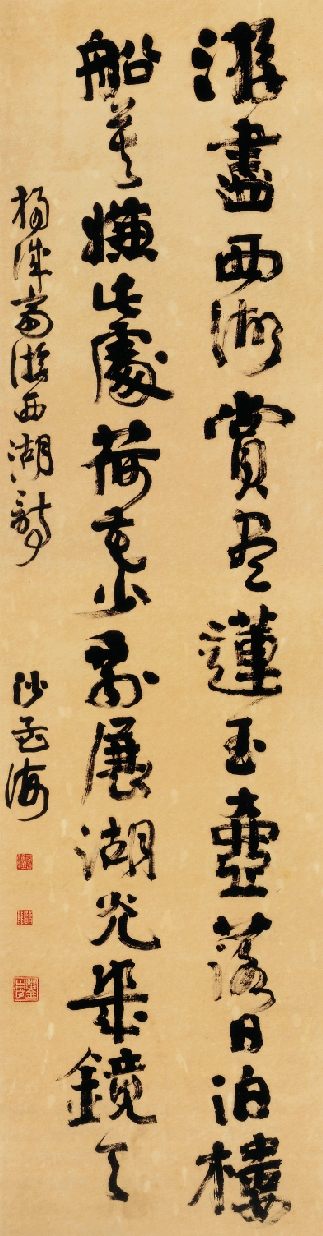 游盡西湖賞尽蓮玉壺落日泊樓
船莫嫌此處荷花少展湖光成鏡天
楊誠齋游西湖詩 沙孟海